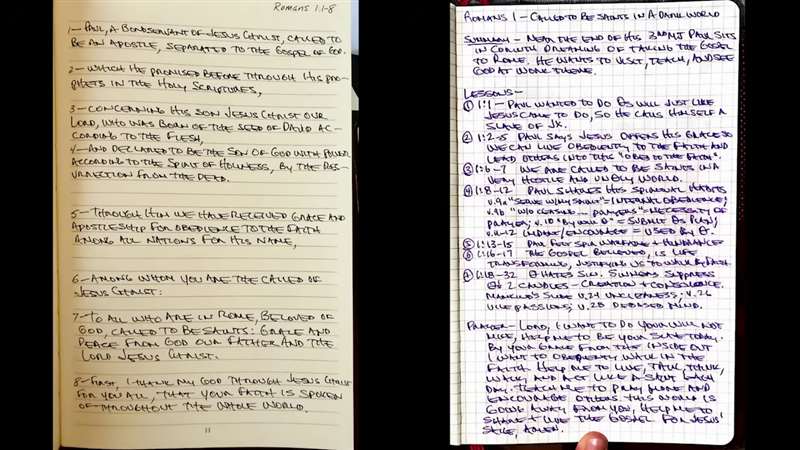 Romans 1:1-8
1- Paul, a bondservant of Jesus Christ, called to
be an apostle, separated to the gospel of God.
2- which He promised before through His pro-
phets in the Holy Scriptures,
3- concerning His Son Jesus Christ our
Lord, who was born of the seed of David ac-
cording to the flesh,
4- and declared to be the Son of God with power
according to the Spirit of Holiness, by the res-
urrection from the dead.
5- Through Him we have received grace and
apostleship for obedience to the faith
among all nations for His name,
6- among whom you are the called of
Jesus Christ:
7- To all who are in Rome, beloved of
God, called to be saints: Grace and
peace from God our Father and the
Lord Jesus Christ.
8- First, I thank my God through Jesus Christ
for you all, that your faith is spoken
of throughout the whole world.
11
Romans 1 - Called to be Saints in a Dark World
Summary - Near the end of his 3rd MJ Paul sits
in Corinth dreaming of taking the gospel
to Rome. He wants to visit, teach, and see
God at work there.
Lessons-
① 1:1 - Paul wanted to do will just like
Jesus came to do, so he calls himself a
slave of JX.
② 1:2-5 Paul says Jesus offers His grace so
we can live obediently to the faith and
lead others into this "obed to the faith".
③ 1:6-7 We are called to be saints in a
very hostile and ungodly world.
④ 1:8-12 Paul shares his spiritual habits
v.9a "serve w/my spirit" = internal obedience;
v.9b "w/o ceasing ... prayers" = necessity of
prayer; v.10 "by will" = submit plan;
v.11-12 impart/encourage = used by
⑤ 1:13-15 Paul felt spir warfare + hindrance
⑥ 1:16-17 The gospel believed, is life
transforming, justifying us to walk by faith
⑦ 1:18-32 hates sin. Sinners suppress
2 candles - creation + conscience.
v.24 uncleanness; v.26
vile passions; v.28 debased mind.
Prayer - Lord, I want to do your will not
mine, help me to be your slave today.
By your grace from the inside out
I want to obediently walk in the
faith. Help me to live, talk, think,
walk, and act like a saint each
day. Teach me to pray more and
encourage others. This world is
going away from you, help me to
share + live the gospel for Jesus'
sake, amen.